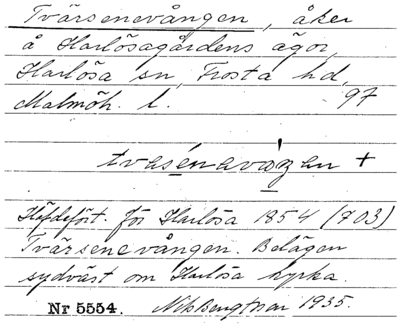 Tvärsenevången, åker
å Harlösagårdens ägor,
Harlösa sn, Frosta hd,
Malmöh. l. 97
tvasénavàŋan +
Häfdefört. för Harlösa 1854 (703)
Tvärsenevången. Belägen
sydväst om Harlösa kyrka.
Nr 5554. Nils Bengtsson 1935.